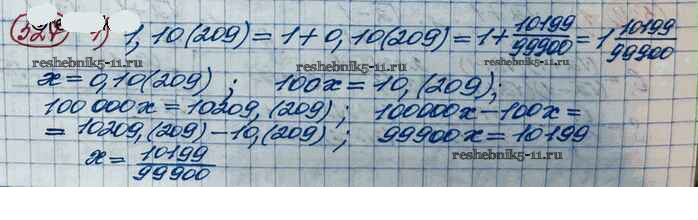 327 1) 1,10(209) = 1 + 0,10(209) = 1 + 10199/99900 = 1 10199/99900
x = 0,10(209) ; 100x = 10,(209);
100 000x = 10209,(209) ; 100000x − 100x =
= 10209,(209) − 10,(209) ; 99900x = 10199
x = 10199/99900
reshebnik5-11.ru
reshebnik5-11.ru
reshebnik5-11.ru
reshebnik5-11.ru